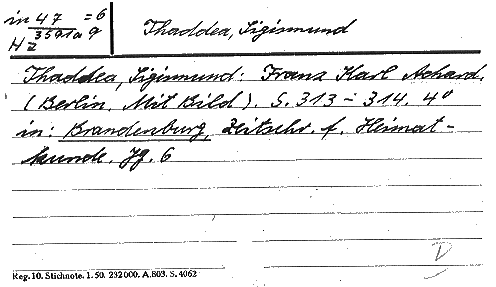 in 47 = 6
Hz 3591a 9
Thaddea, Sigismund
Thaddea, Sigismund: Franz Karl Achard.
(Berlin. Mit Bild). S. 313 - 314. 4°
in: Brandenburg, Zeitschr. f. Heimat-
kunde. Jg. 6
D
Reg. 10. Stichnote. 1. 50. 232000. A.803. S. 4062